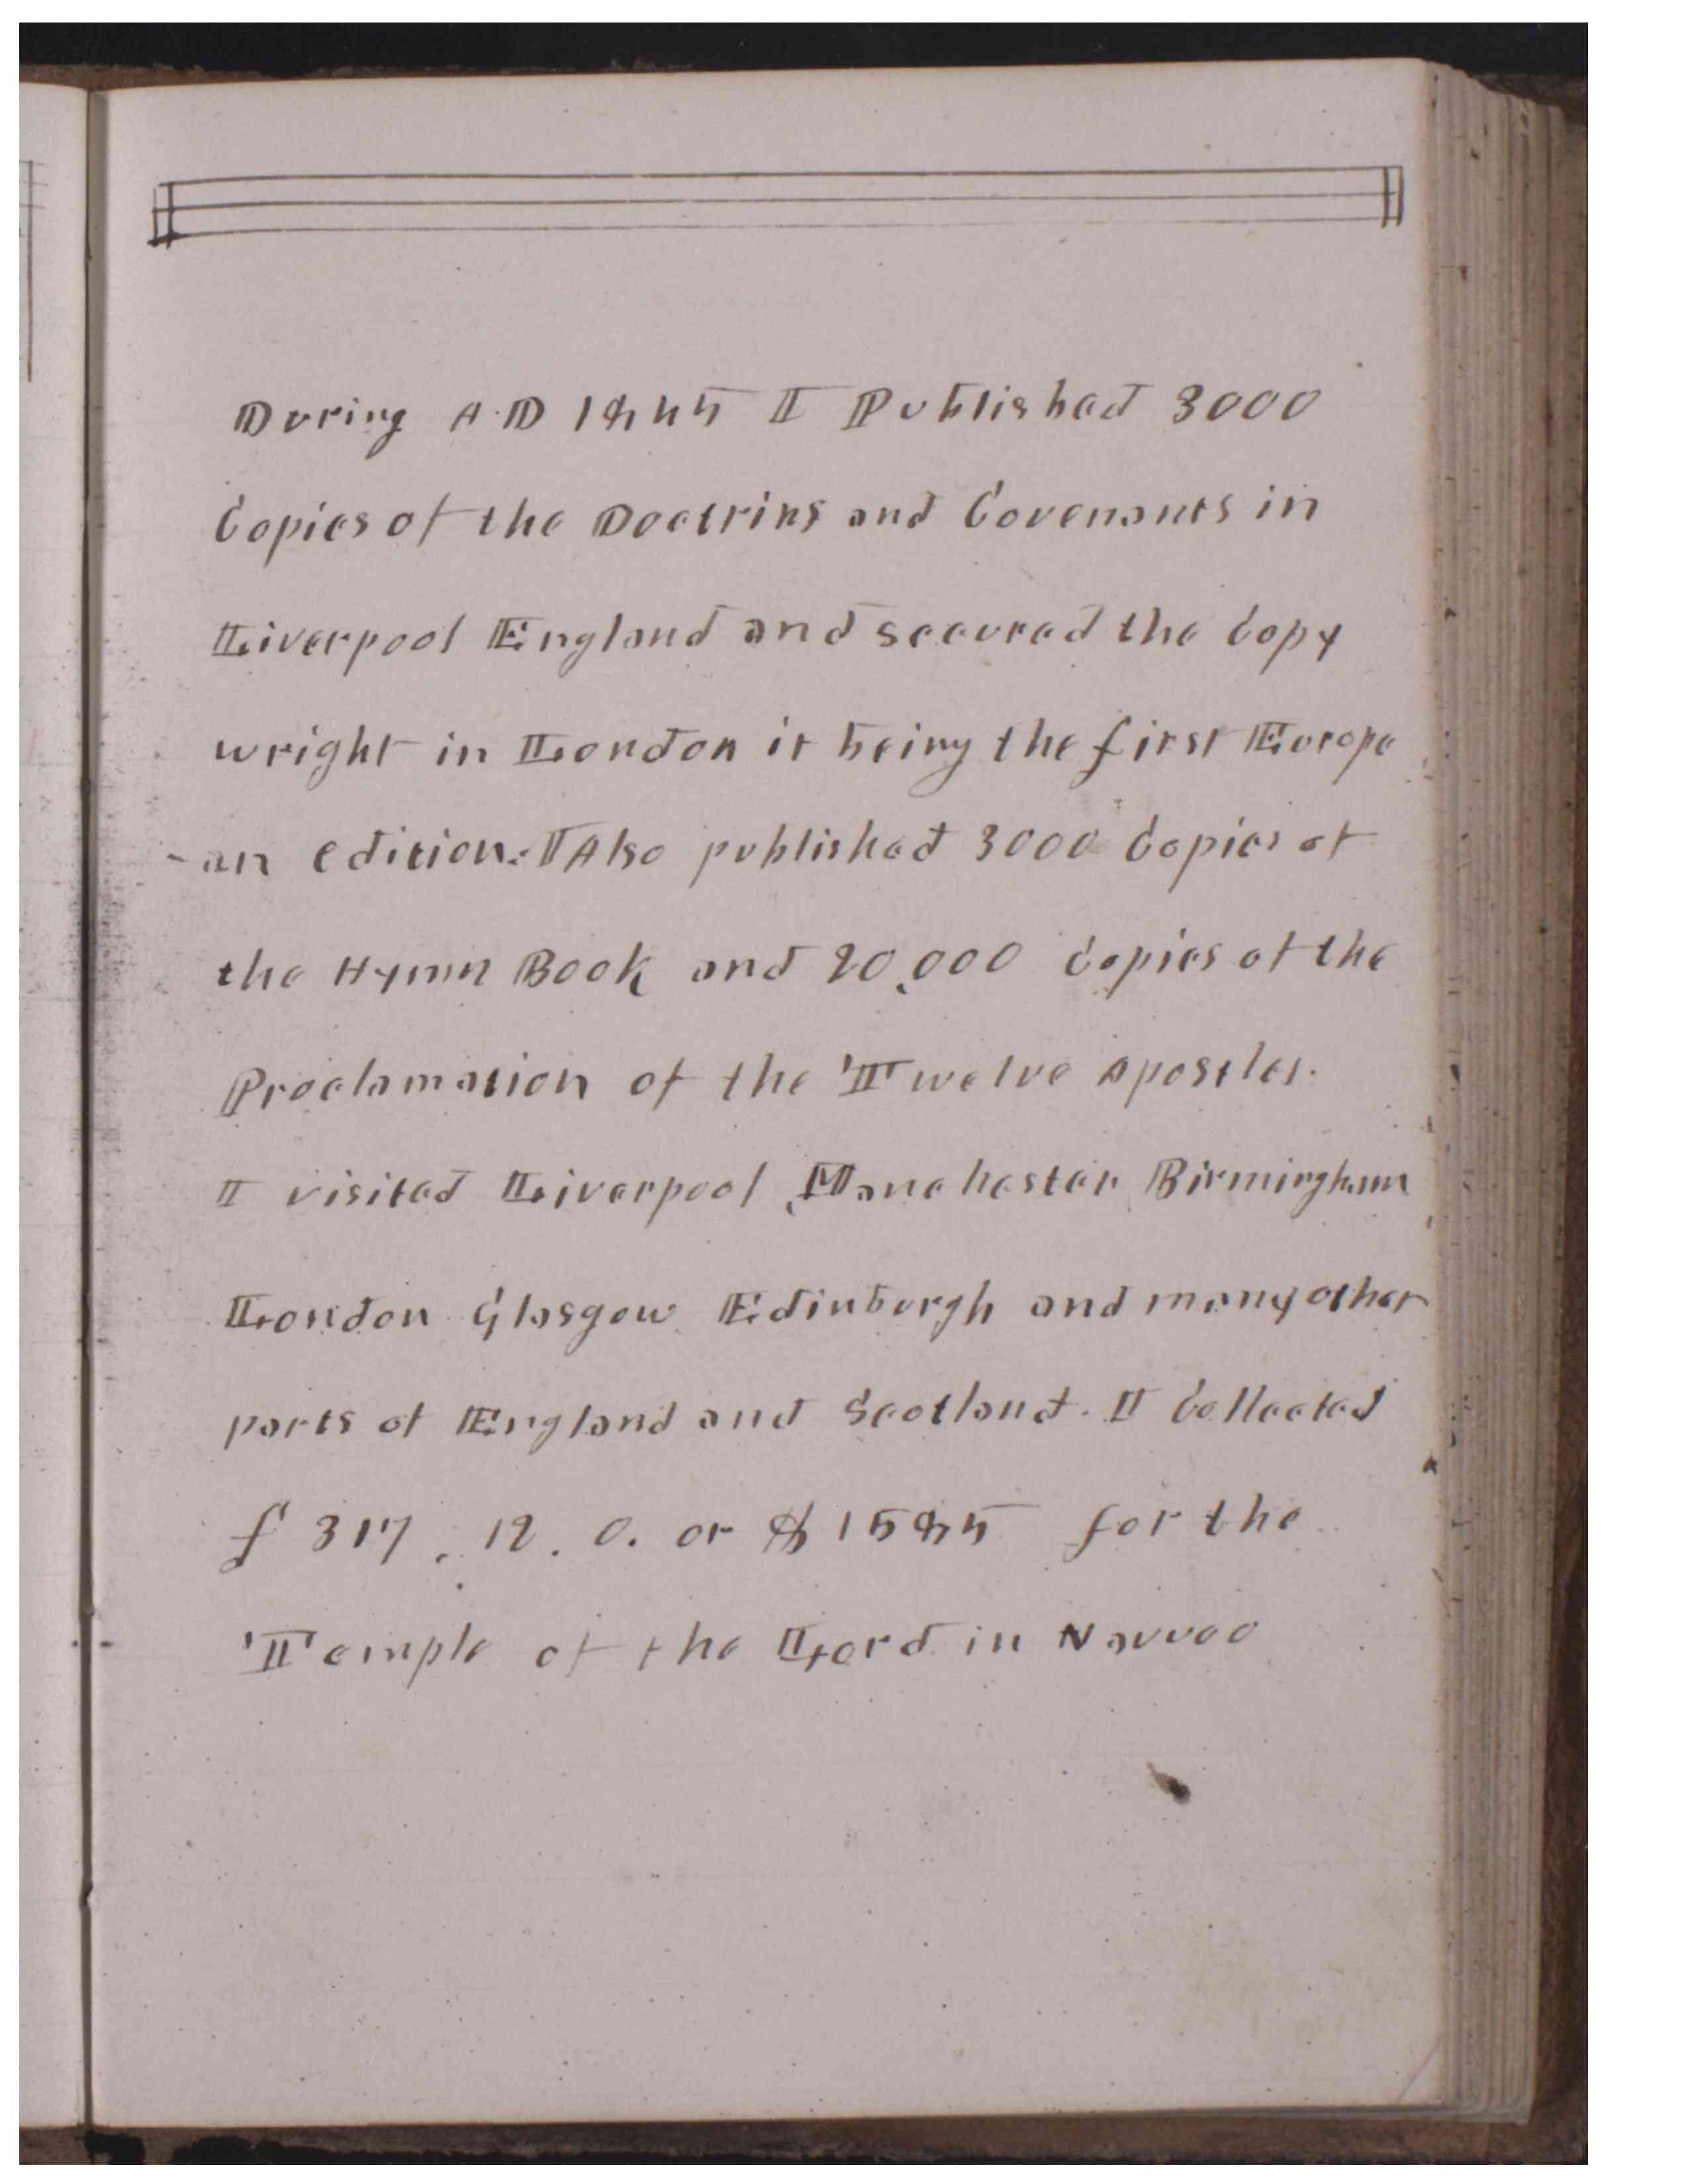 During A.D 1845 I Published 3000
Copies of the Doctrins and Covenants in
Liverpool England and secured the Copy
wright in London it being the first Europe
-an edition. I Also published 3000 Copies of
the Hymn Book and 20,000 Copies of the
Proclamation of the Twelve Apostles.
I visited Liverpool, Manchester, Birmingham,
London Glasgow Edinburgh and many other
parts of England and Scotland. I Collected
£ 317. 12. 0. or $1585 for the
Temple of the Lord in Nauvoo